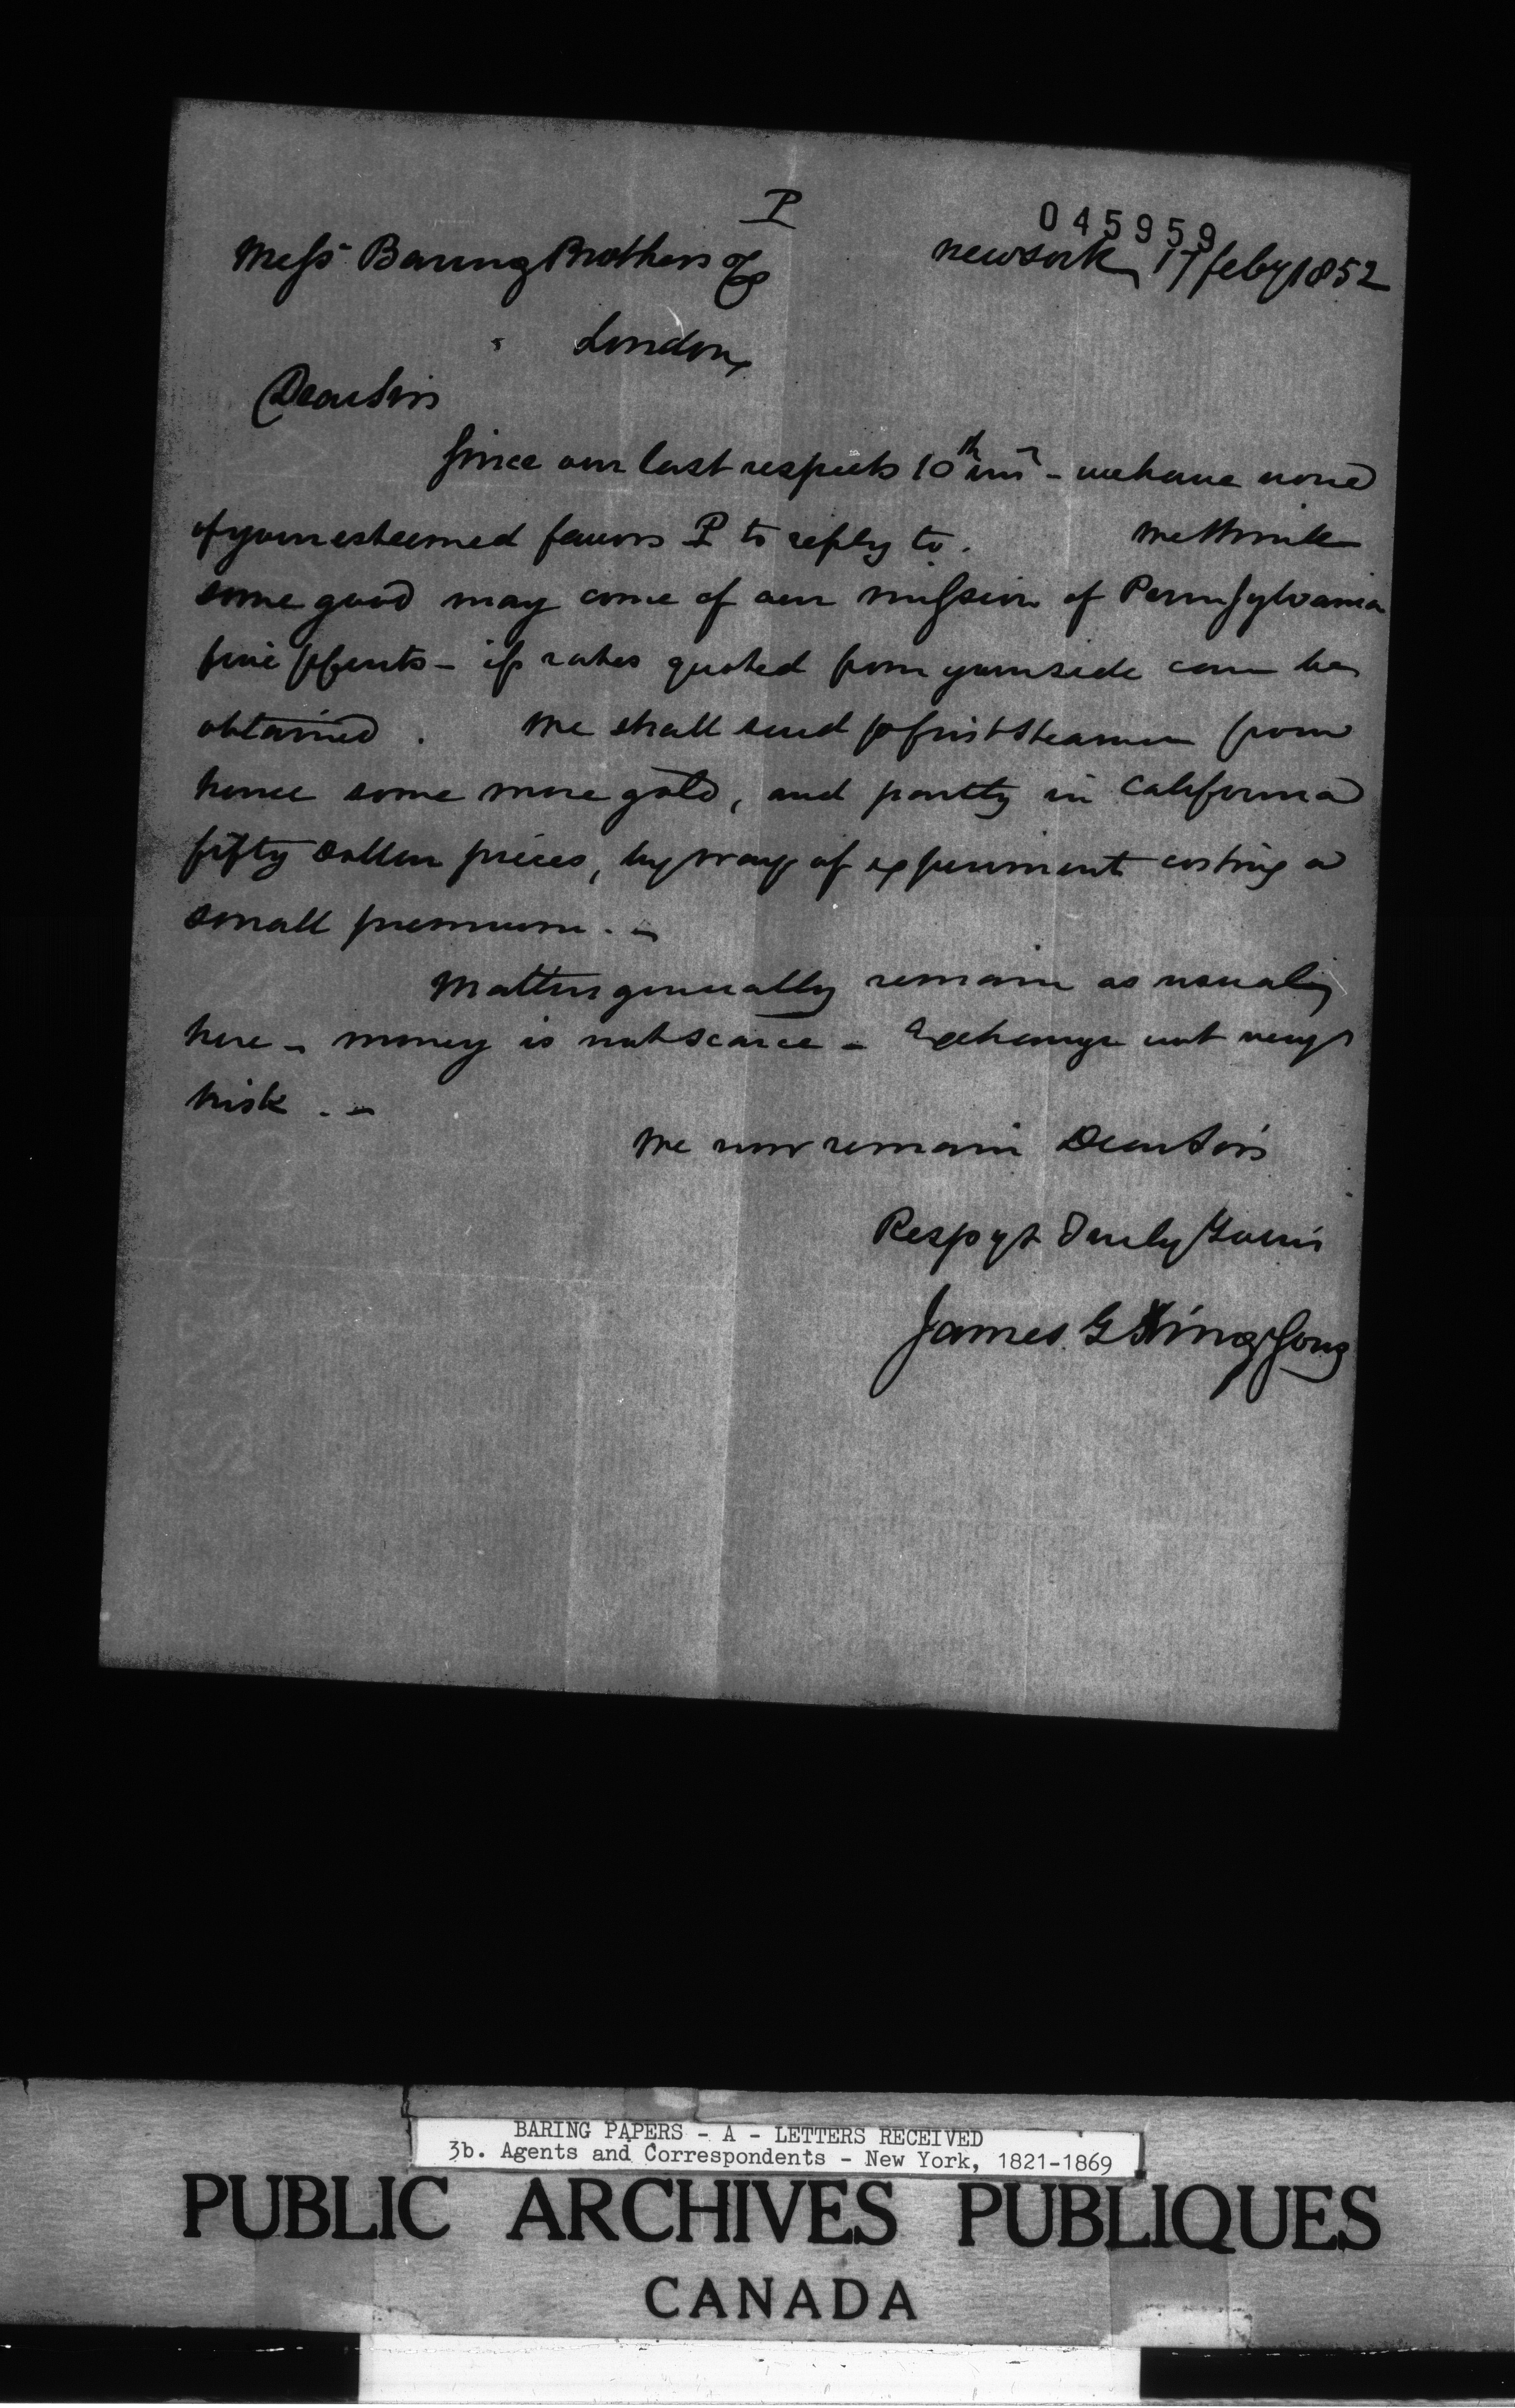 P
045959
Mess^rs Baring Brothers & Co
New York 17 feby 1852
London
Dear Sirs
Since our last respects 10th ins^t - we have none
of your esteemed favors P to reply to. We think
some good may come of our mission of Pennsylvania
five p cents - if rates quoted from your side can be
obtained. We shall send p first steamer from
hence some more gold, and partly in California
fifty dollar pieces, by way of experiment costing a
small premium. -
Matters generally remain as usual in
here - money is not scarce - Exchange not very
brisk. -
We now remain Dear Sirs
Resp'y & Truly Yours
James G King & Sons
BARING PAPERS - A - LETTERS RECEIVED
3b. Agents and Correspondents - New York, 1821-1869
PUBLIC ARCHIVES PUBLIQUES
CANADA